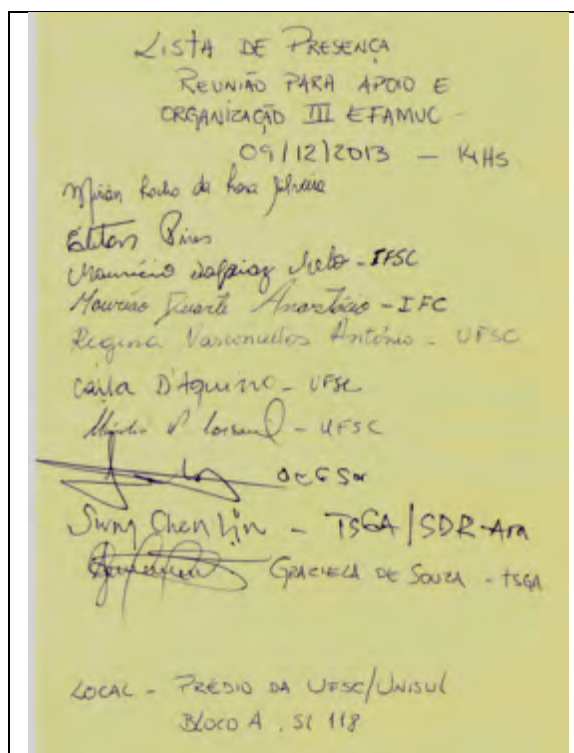 LISTA DE PRESENÇA
REUNIÃO PARA APOIO E
ORGANIZAÇÃO III EFAMUC -
09/12/2013 - 14Hs
Rocha da Rosa
Pires
Maurício Dalpiaz Melo - IFSC
Maurício Duarte Anastácio - IFC
Regina Vasconcellos Antônio - UFSC
Carla D'Aquino - UFSC
- UFSC
Swng Chen Lin - TSGA/SDR-Ara
GRACIELA DE SOUZA - TSGA
LOCAL - PRÉDIO DA UFSC/UNISUL
BLOCO A, Sl 118